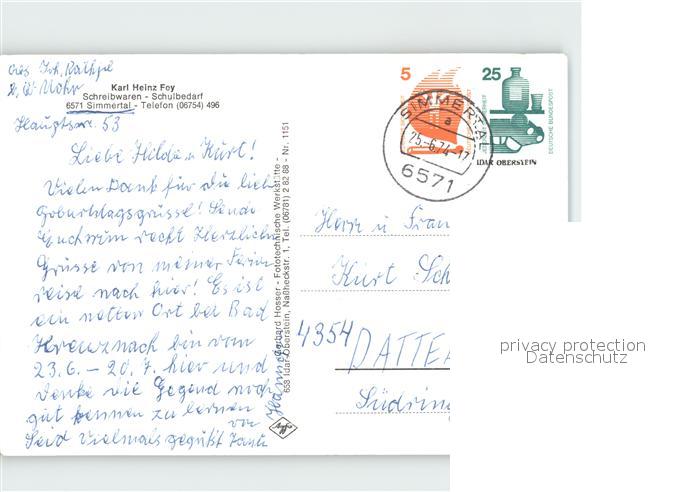 Karl Heinz Fey
Schreibwaren - Schulbedarf
6571 Simmertal - Telefon (06754) 496
Hauptstr. 53
Liebe Hilde u. Kurt!
Vielen Dank für die lieben
Geburtstagsgrüsse! Sende
Euch nun recht Herzliche
Grüsse von meiner Ferien
reise nach hier! Es ist
ein netter Ort bei Bad
Kreuznach bin vom
23.6. - 20.7. hier und
denke die Gegend noch
gut kennen zu lernen
Seid Vielmals gegrüßt von
Tante
Hanna
Gerhard Hosser - Fototechnische Werkstätte -
658 Idar-Oberstein, Naßheckstr. 1, Tel. (06781) 2 82 88 - Nr. 1151
Agfa
5
25
DEUTSCHE BUNDESPOST
IDAR OBERSTEIN
SIMMERTAL
a
25.-6.74-17
6571
Herrn u Frau
Kurt Sch
4354 DATTE
Südrin
privacy protection
Datenschutz